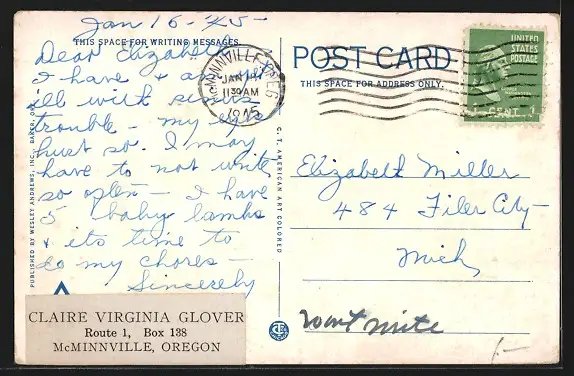 Jan 16 - 45 -
THIS SPACE FOR WRITING MESSAGES
Dear Elizabeth
I have &
ill with sinus
trouble - my eyes
hurt so. I may
have to not write
so often - I have
5 baby lambs
& its time to
do my chores -
Sincerely
CLAIRE VIRGINIA GLOVER
Route 1, Box 138
McMINNVILLE, OREGON
PUBLISHED BY WESLEY ANDREWS, INC., BAKER, ORE.
McMINNVILLE OREG
JAN 17
1130 AM
1945
C. T. AMERICAN ART COLORED
POST CARD
THIS SPACE FOR ADDRESS ONLY.
UNITED
STATES
POSTAGE
1 CENT 1
Elizabeth Miller
484 Filer City -
Mich,
wont write
1-